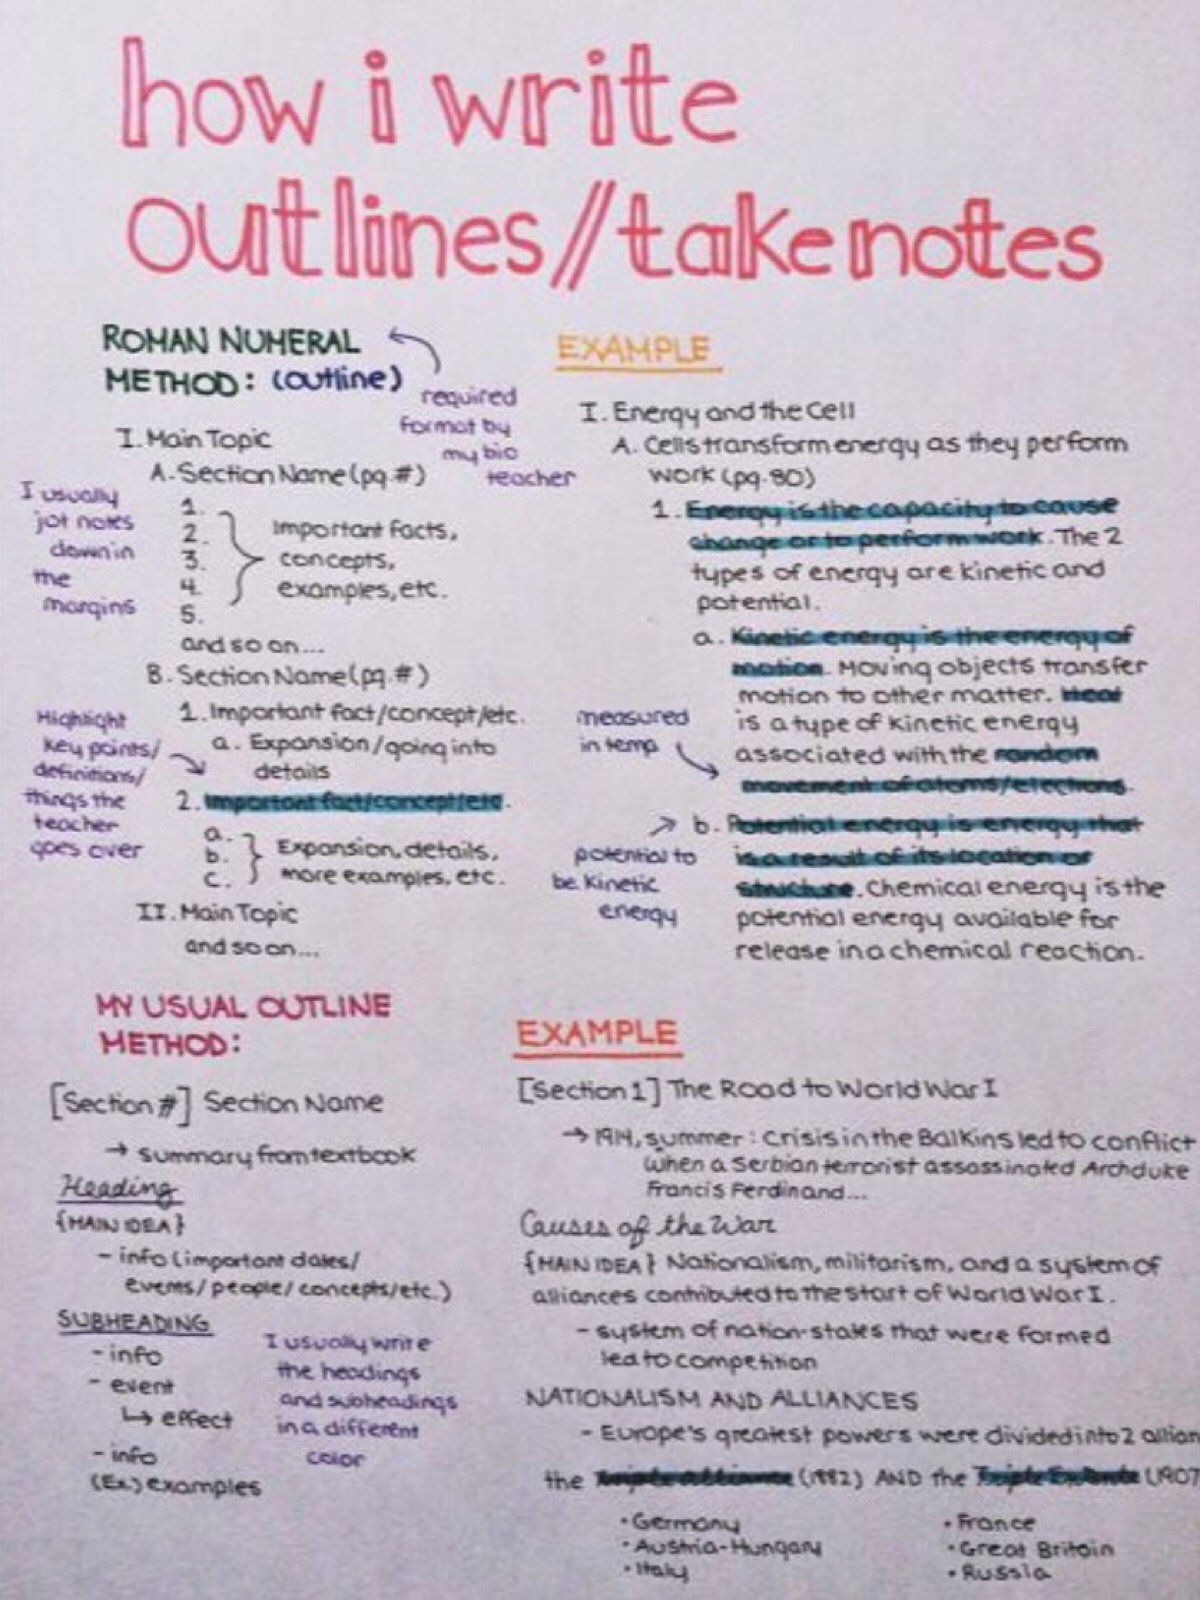 how i write
outlines//take notes
ROMAN NUMERAL
METHOD: (outline)
required
format by
my bio
teacher
I. Main Topic
A. Section Name (pg. #)
1.
2.
3.
4.
5.
Important facts,
concepts,
examples, etc.
and so on...
I usually
jot notes
down in
the
margins
B. Section Name (pg. #)
1. Important fact/concept/etc.
a. Expansion/going into
details
2. Important fact/concept/etc.
a.
b.
c.
Expansion, details,
more examples, etc.
Highlight
key points/
definitions/
things the
teacher
goes over
II. Main Topic
and so on...
EXAMPLE
I. Energy and the Cell
A. Cells transform energy as they perform
work (pg. 80)
1. Energy is the capacity to cause
change or to perform work. The 2
types of energy are kinetic and
potential.
a. Kinetic energy is the energy of
motion. Moving objects transfer
motion to other matter. Heat
is a type of kinetic energy
associated with the random
movement of atoms/electrons.
measured
in temp
b. Potential energy is energy that
is a result of its location or
structure. Chemical energy is the
potential energy available for
release in a chemical reaction.
potential to
be kinetic
energy
MY USUAL OUTLINE
METHOD:
[Section #] Section Name
→ summary from textbook
Heading
{MAIN IDEA}
- info (important dates/
events/people/concepts/etc.)
SUBHEADING
- info
- event
↳ effect
- info
(Ex.) examples
I usually write
the headings
and subheadings
in a different
color
EXAMPLE
[Section 1] The Road to World War I
→ 1914, summer: Crisis in the Balkins led to conflict
when a Serbian terrorist assassinated Archduke
Francis Ferdinand...
Causes of the War
{MAIN IDEA} Nationalism, militarism, and a system of
alliances contributed to the start of World War I.
- system of nation-states that were formed
led to competition
NATIONALISM AND ALLIANCES
- Europe's greatest powers were divided into 2 allian
the Triple Alliance (1882) AND the Triple Entente (1907
• Germany
• Austria-Hungary
• Italy
• France
• Great Britain
• Russia